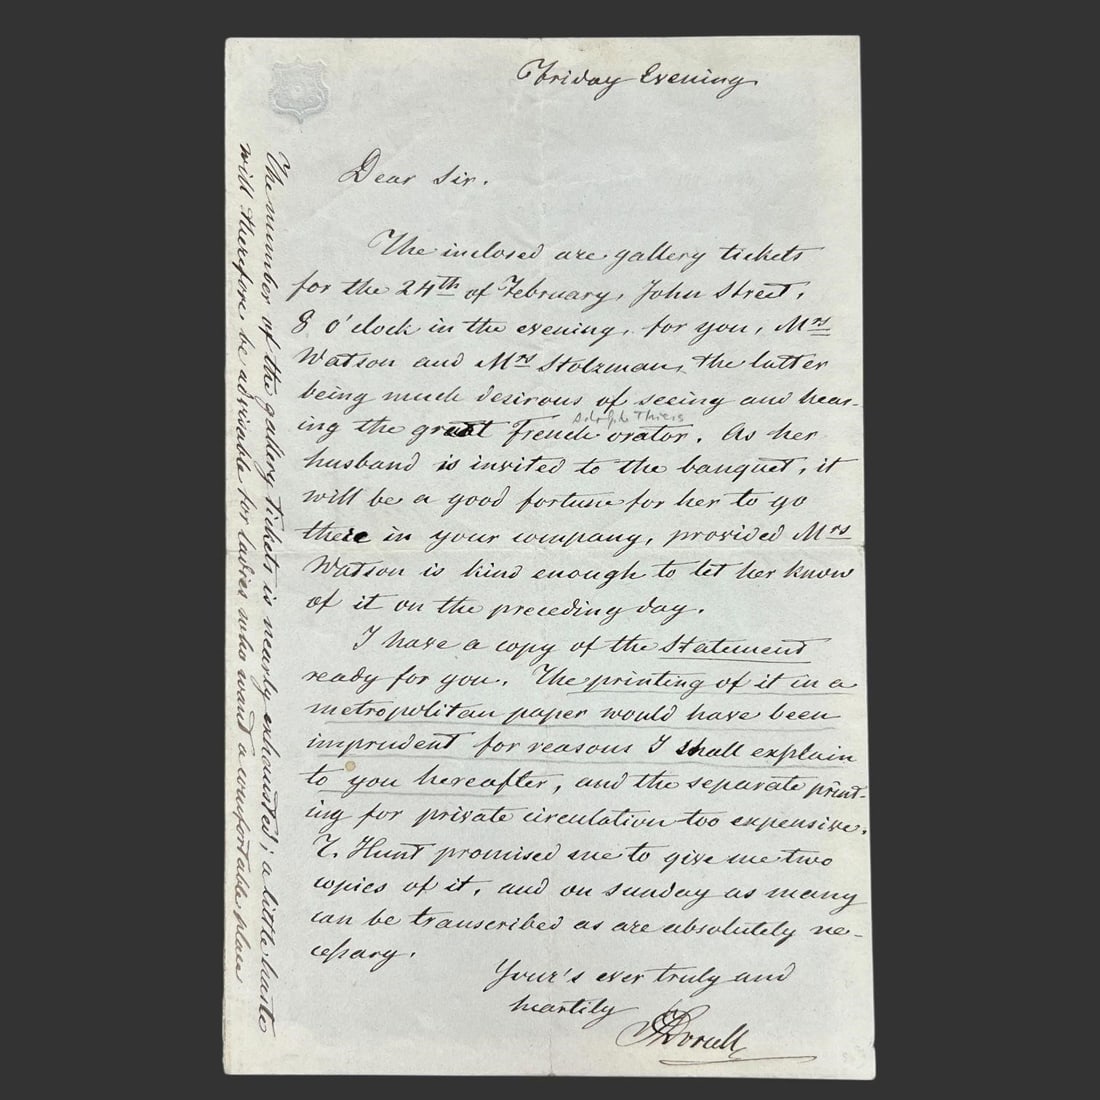 Friday Evening
Dear Sir.
The inclosed are gallery tickets
for the 24th of February, John Street,
8 o'clock in the evening, for you, Mrs
Watson and Mrs Stolzman, the latter
being much desirous of seeing and hear-
Thiers
ing the great French orator. As her
husband is invited to the banquet, it
will be a good fortune for her to go
there in your company, provided Mrs
Watson is kind enough to let her know
of it on the preceding day.
I have a copy of the Statement
ready for you. The printing of it in a
metropolitan paper would have been
imprudent for reasons I shall explain
to you hereafter, and the separate print-
ing for private circulation too expensive.
T. Hunt promised me to give me two
copies of it, and on sunday as many
can be transcribed as are absolutely ne-
cessary.
Your's ever truly and
heartily
The number of the gallery tickets is nearly exhousted; a little haste
will therefore be advisable for ladies who want a comfortable place